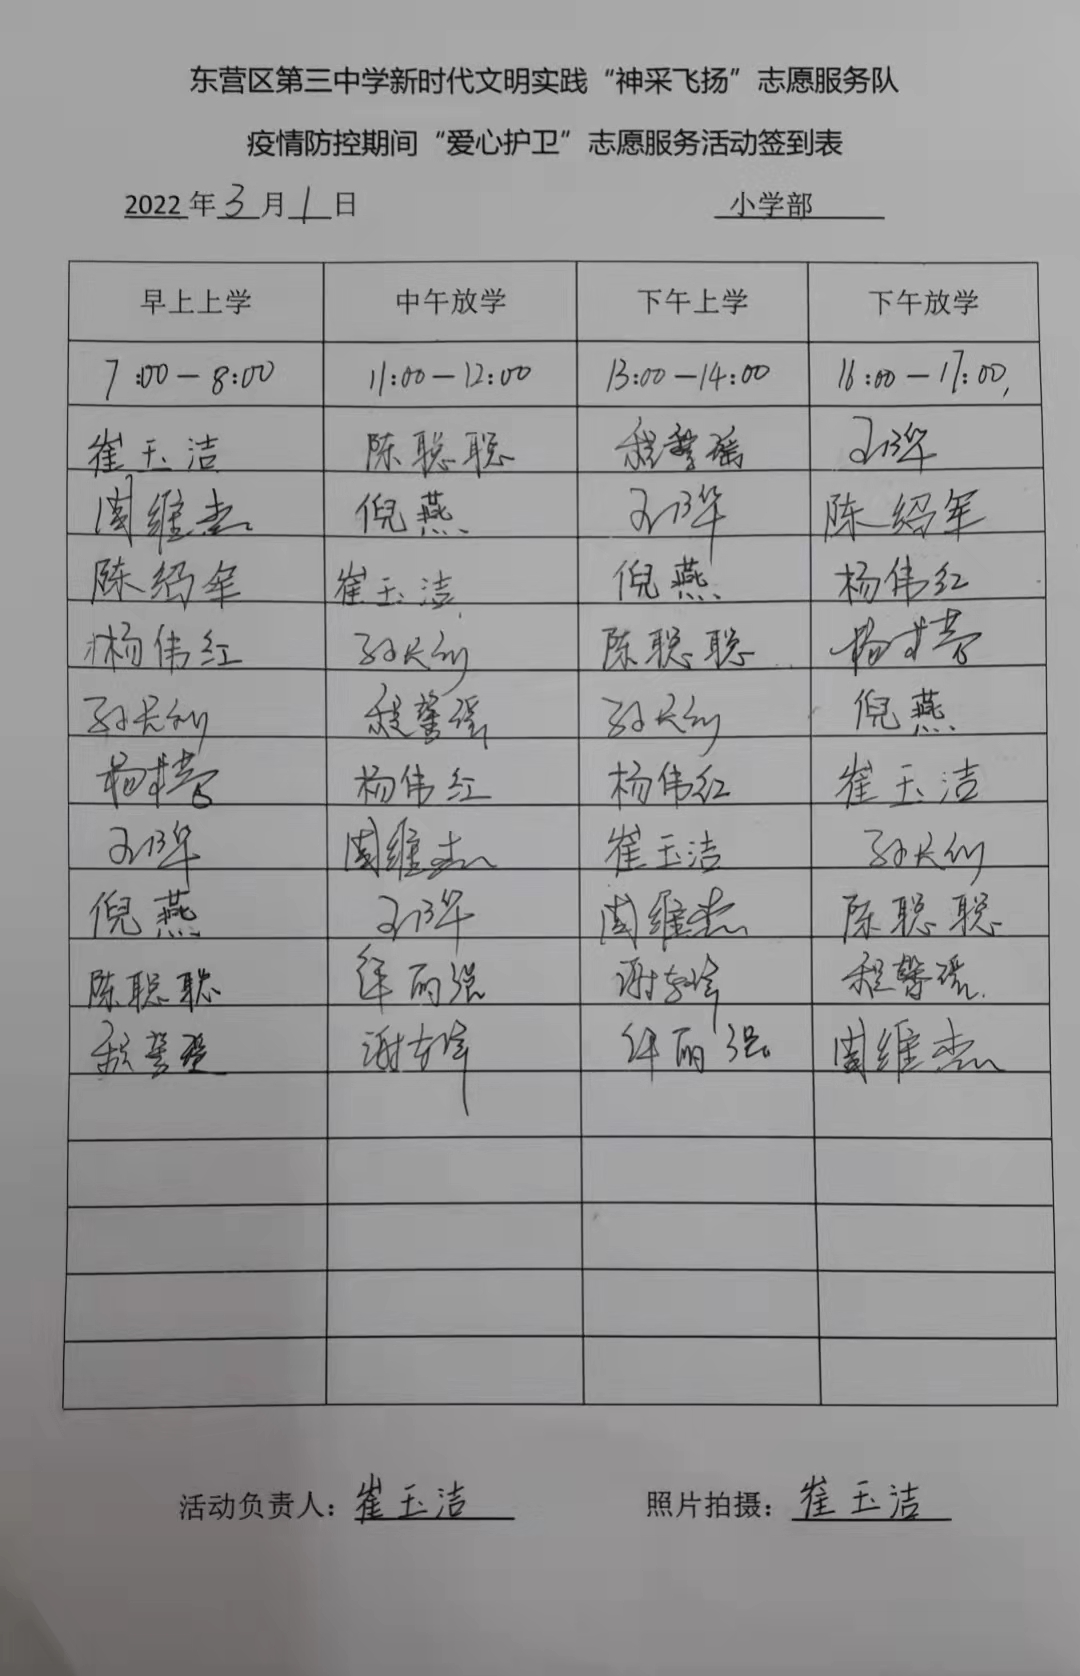 东营区第三中学新时代文明实践“神采飞扬”志愿服务队
疫情防控期间“爱心护卫”志愿服务活动签到表
2022年3月1日 小学部
早上上学 中午放学 下午上学 下午放学
7:00－8:00 11:00－12:00 13:00－14:00 16:00－17:00
崔玉洁 陈聪聪 程馨瑶
周维杰 倪燕 陈绍军
陈绍军 崔玉洁 倪燕 杨伟红
杨伟红 孙长利 陈聪聪
孙长利 程馨瑶 孙长利 倪燕
杨伟红 杨伟红 崔玉洁
周维杰 崔玉洁 孙长利
倪燕 周维杰 陈聪聪
陈聪聪 程馨瑶
周维杰
活动负责人：崔玉洁 照片拍摄：崔玉洁